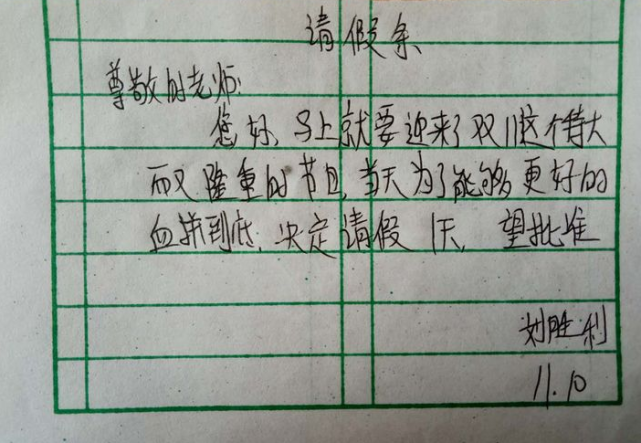 请假条
尊敬的老师:
您好,马上就要迎来了双11这个特大
而又隆重的节日,当天为了能够更好的
血拼到底,决定请假1天,望批准
刘胜利
11.10